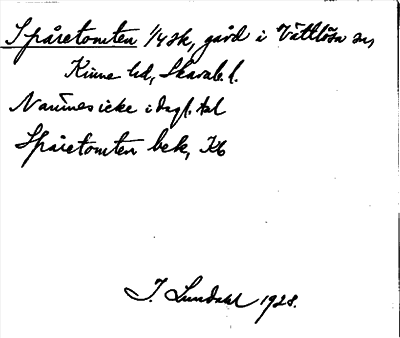 Spåretomten 1/4 sk, gård i Vättlösa sn,
Kinne hd, Skarab. l.
Namnes icke i dagl. tal
Spåretomten bek, Kb
J. Lundahl 1928.